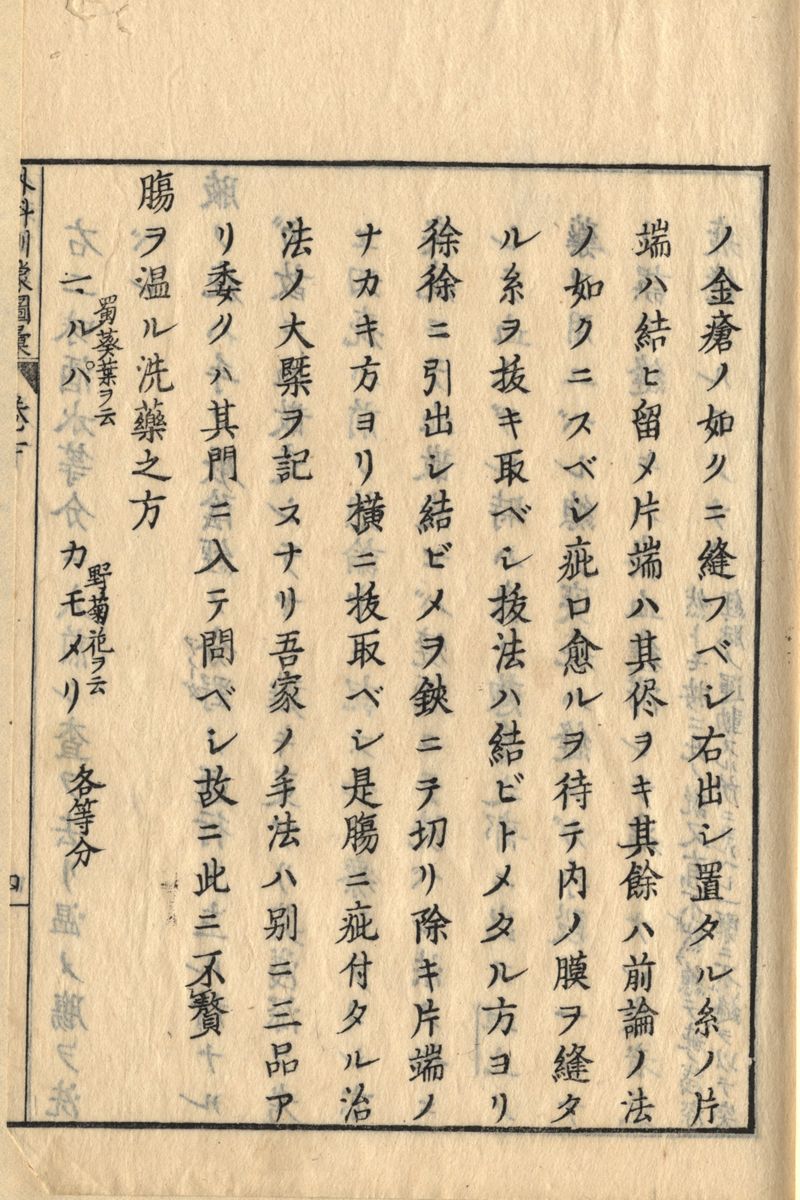 ノ金瘡ノ如クニ縫フベシ右出シ置タル糸ノ片
端ハ結ヒ留メ片端ハ其侭ヲキ其餘ハ前論ノ法
ノ如クニスベシ疵口愈ルヲ待テ内ノ膜ヲ縫タ
ル糸ヲ抜キ取ベシ抜法ハ結ビトメタル方ヨリ
徐徐ニ引出シ結ビメヲ鋏ニテ切リ除キ片端ノ
ナカキ方ヨリ横ニ抜取ベシ是膓ニ疵付タル治
法ノ大槩ヲ記スナリ吾家ノ手法ハ別ニ三品ア
リ委クハ其門ニ入テ問ベシ故ニ此ニ不贅
膓ヲ温ル洗藥之方
蜀葵葉ヲ云
マルバ
野菊花ヲ云
カモメリ
各等分